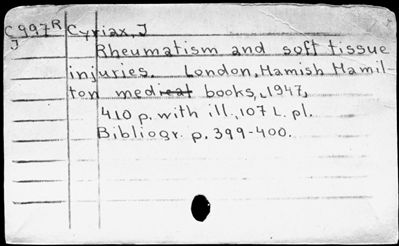 C997R Cyriax, J
J Rheumatism and soft tissue
injuries. London, Hamish Hamil-
ton med books, 1947,
410 p. with ill., 107 L. pl.
Bibliogr. p. 399-400.